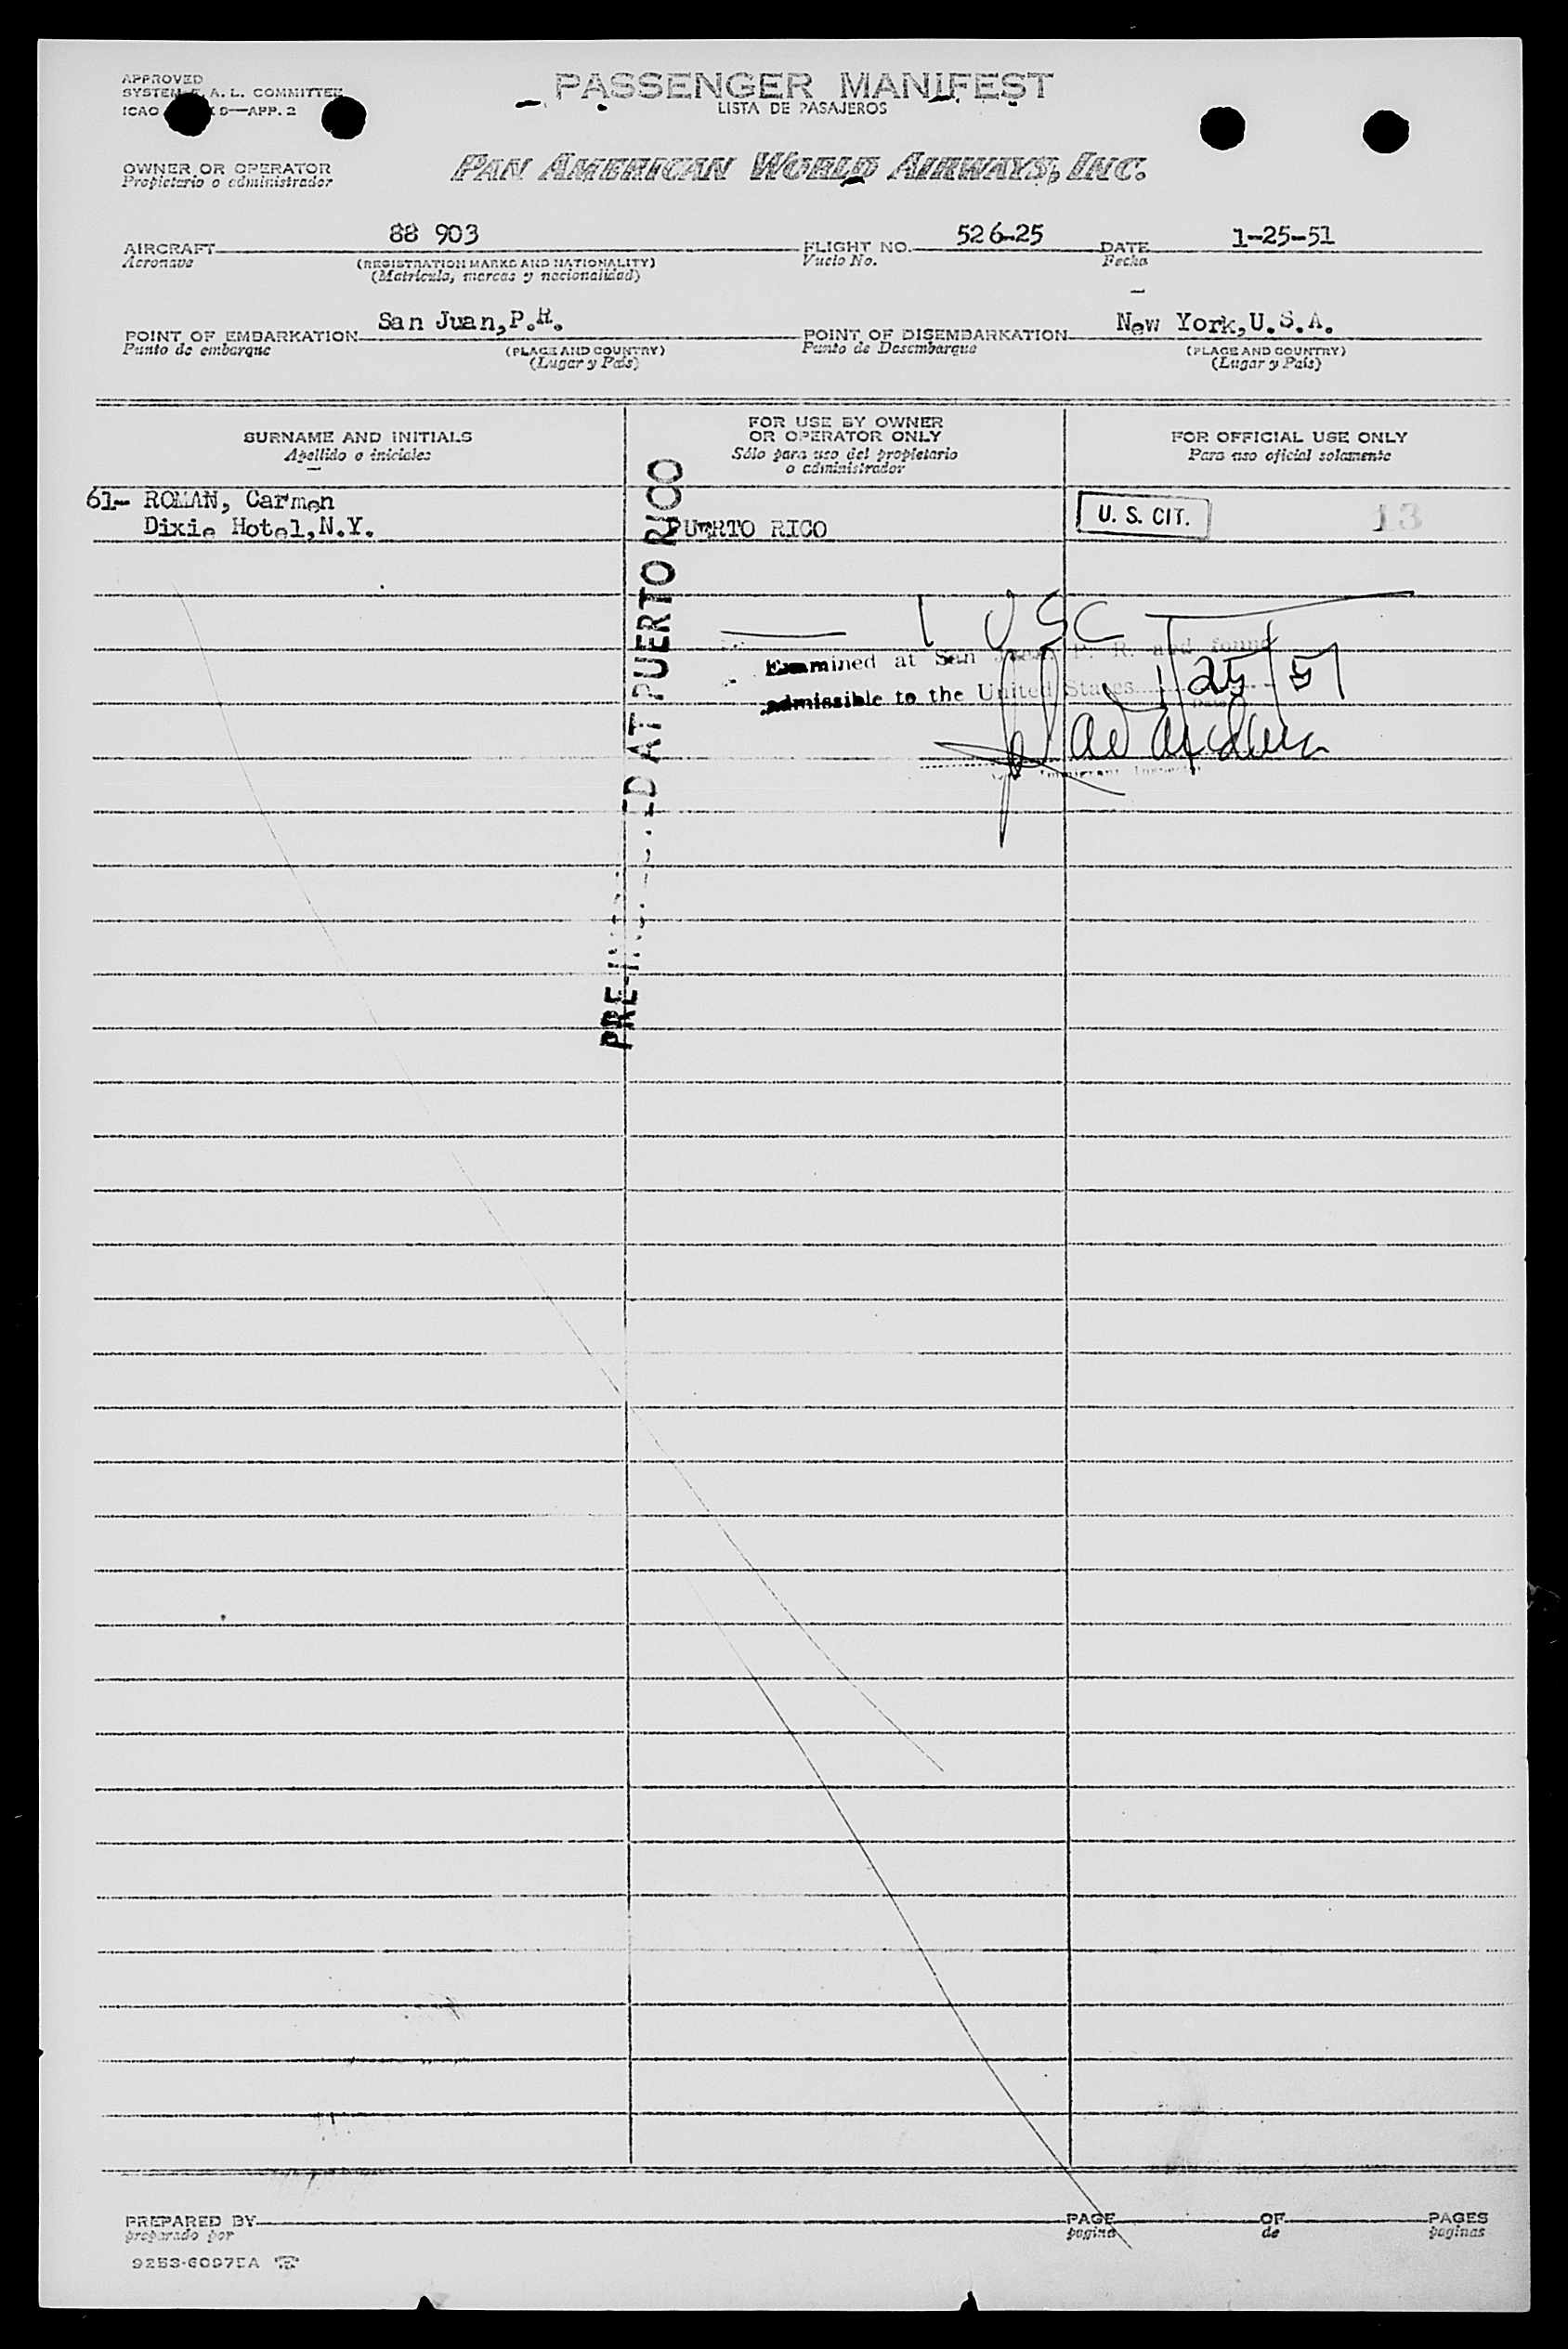 APPROVED
SYSTEM A. L. COMMITTEE
ICAO 9—APP. 2
PASSENGER MANIFEST
LISTA DE PASAJEROS
OWNER OR OPERATOR
Propietario o administrador
PAN AMERICAN WORLD AIRWAYS, INC.
AIRCRAFT 88 903 FLIGHT NO. 526-25 DATE 1-25-51
Aeronave (REGISTRATION MARKS AND NATIONALITY) Vuelo No. Fecha
(Matricula, marcas y nacionalidad)
POINT OF EMBARKATION San Juan,P.R. POINT OF DISEMBARKATION New York,U.S.A.
Punto de embarque (PLACE AND COUNTRY) Punto de Desembarque (PLACE AND COUNTRY)
(Lugar y País) (Lugar y País)
SURNAME AND INITIALS
Apellido o iniciales
FOR USE BY OWNER
OR OPERATOR ONLY
Sólo para uso del propietario
o administrador
FOR OFFICIAL USE ONLY
Para uso oficial solamente
61- ROMAN, Carmen
Dixie Hotel,N.Y. PUERTO RICO U. S. CIT. 13
1 USC
Examined at San Juan P. R. and found
admissible to the United States 1/25/51
Immigrant Inspector
ED AT PUERTO RICO
PREPARED BY PAGE OF PAGES
preparado por pagina de paginas